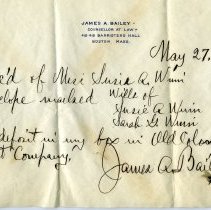 JAMES A. BAILEY
COUNSELLOR AT LAW
45-49 BARRISTERS HALL
BOSTON MASS.
May 27.
e'd of Miss Susia A. Winn
elope marked Wills of
Susie A Winn
Sarah G Winn
deposit in my box in Old Colon
t Company.
James A. Bail